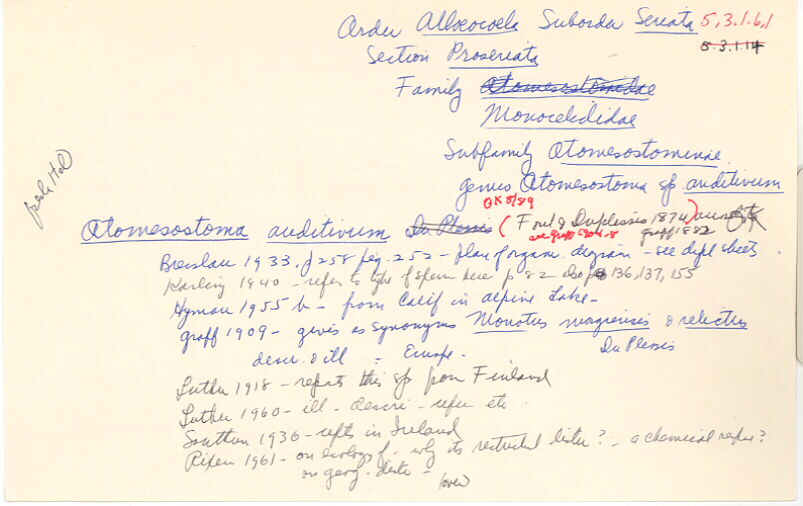 Order Alloeocoela Suborder Seriata 5,3.1.6,1
5.3.1.14
Section Proseriata
Family Otomesostomidae
Monocelididae
Subfamily Otomesostominae
genus Otomesostoma sp. auditivum
OK 8/89
Otomesostoma auditivum Du Plessis (Forel & Duplessis 1874)
see Graff 1904-8 Graff 1882
Bresslau 1933, p 258 fig. 252 - plan of organ. diagram - see dupl sheets.
Karling 1940 - refers to type of sperm here p 82 also p 136, 137, 155
Hyman 1955 b - from Calif in alpine Lake -
Graff 1909 - gives as synonyms Monotus morgiensis & relictus
descr. & ill = Europe. Du Plessis
Luther 1918 - reports this sp from Finland
Luther 1960 - ill - descri - refer etc.
Southern 1936 - repts in Ireland
Rixen 1961 - on ecology of. why its restricted distr? - a chemical ?
on geog. distr - (over)